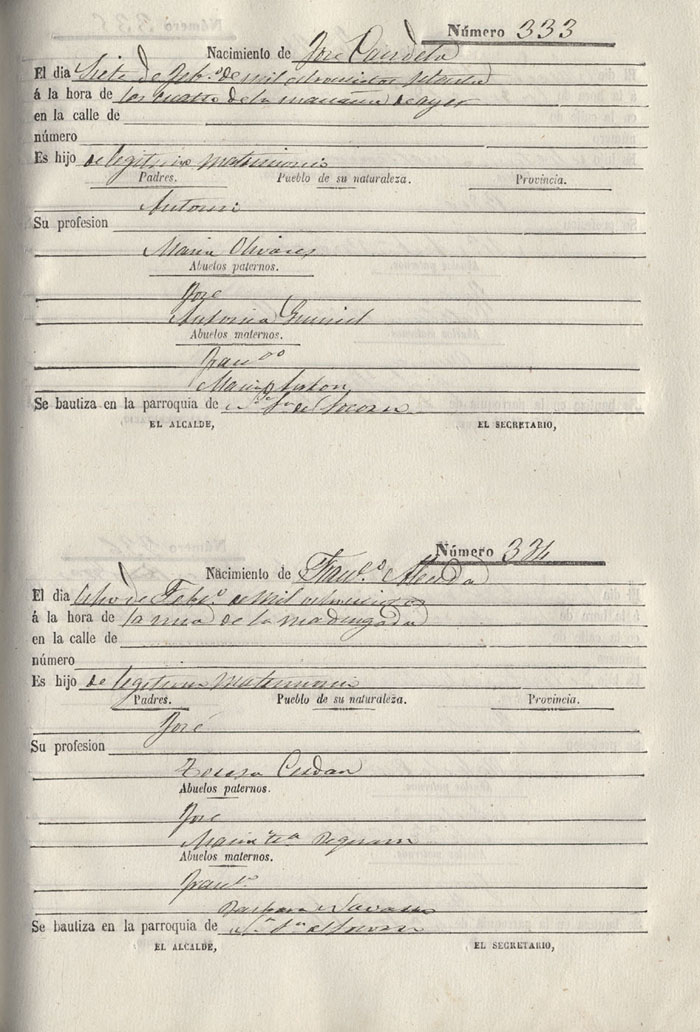 Número 333
Nacimiento de José Candela
El dia Siete de Feb.º de mil ochocientos setenta
á la hora de las cuatro de la mañana de ayer
en la calle de
número
Es hijo de legitimo matrimonio
Padres. Pueblo de su naturaleza. Provincia.
Antonio
Su profesion
Maria Olivares
Abuelos paternos.
José
Antonia
Abuelos maternos.
Fran.co
Maria Anton
Se bautiza en la parroquia de
EL ALCALDE, EL SECRETARIO,
Número 334
Nacimiento de Fran.co
El dia Ocho de Feb.º de mil ochocientos
á la hora de la una de la madrugada
en la calle de
número
Es hijo de legitimo matrimonio
Padres. Pueblo de su naturaleza. Provincia.
José
Su profesion
Teresa Cerdan
Abuelos paternos.
José
Maria
Abuelos maternos.
Fran.co
Barbara Navarro
Se bautiza en la parroquia de
EL ALCALDE, EL SECRETARIO,